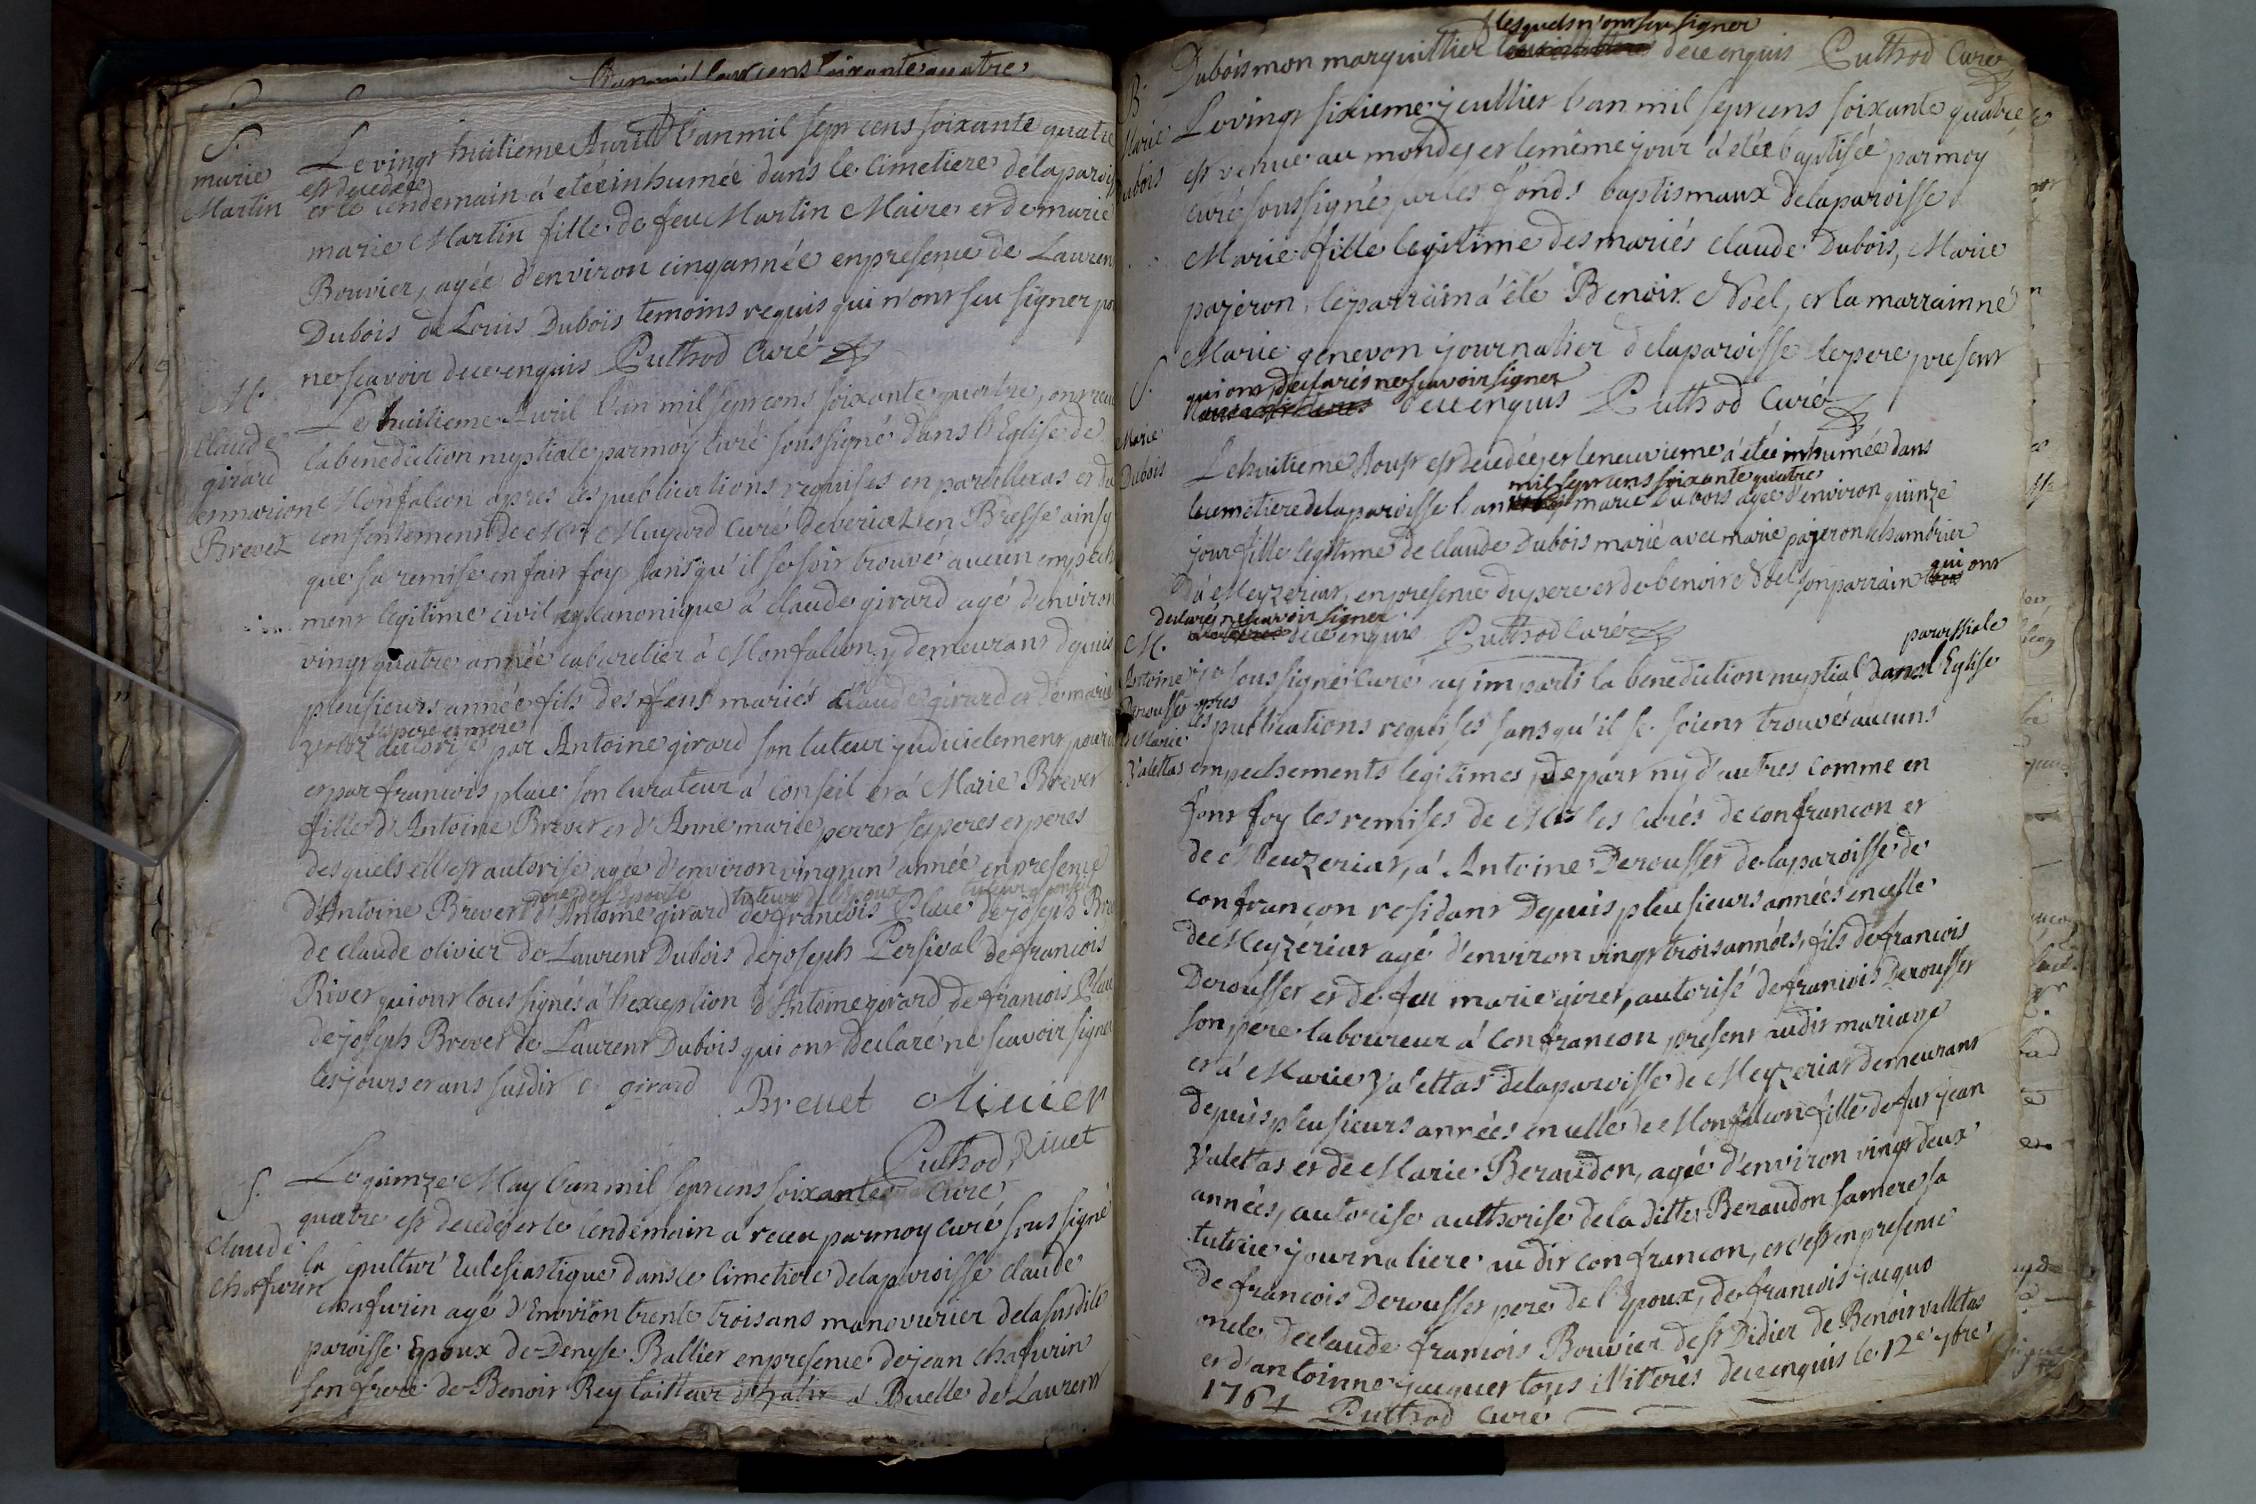 L'an mil sept cens soixante quatre
S.
marie
Martin
Le vingt huitieme Avril l'an mil sept cens soixante quatre
est decedée
et le lendemain a etée inhumée dans le cimetiere de la paroiss
marie Martin fille de feu Martin Maire et de marie
Bouvier, agée d'environ cinq année en presence de Lauren
Dubois de Louis Dubois temoins requis qui n'ont sçu signer po
ne scavoir de ce enquis Puthod Curé
M.
Claude
girard
et marion
Brevet
Le huitieme Avril l'an mil sept cens soixante quatre, ont recu
la benediction nuptiale par moy curé soussigné dans l'Eglise de
Monfalcon apres les publications requises en pareil cas et du
consentement de Mr Muyard Curé de veriat en Bresse ainsy
que sa remise en fait foy sans qu'il se soit trouvé aucun empech
ment legitime civil ny canonique a claude girard agé d'environ
vingt quatre année cabaretier a Monfalcon y demeurant depuis
plusieurs année fils des feus mariés claude girard et de marie
ses pere et mere
par Antoine girard son tuteur judicielement pour
et par francois place son curateur a conseil et a Marie Brevet
fille d'Antoine Brevet et d'Anne marie perret ses peres et peres
desquels elle est autorise agée d'environ vingt un année en presence
pere de l'Epouse tuteur de l'Epoux
d'Antoine Brevet d'Antoine girard de francois Place de joseph Bre
de claude olivier de Laurent Dubois de joseph Persival de francois
Rivet qui ont tous signés a l'exception d'Antoine girard de francois Place
de joseph Brevet de Laurent Dubois qui ont declaré ne scavoir signer
les jours et ans susdit C girard Brevet olivier
Puthod Rivet
Curé
S.
Claude
Chafurin
Le quinze May l'an mil sept cens soixante
quatre est decedé et le lendemain a recu par moy curé soussigné
la sepultur Eclesiastique dans le cimetiere de la paroisse claude
chafurin agé d'Environ trente trois ans manouvrier de la susdite
paroisse Epoux de Denyse Ballier en presence de jean chafurin
son frere de Benoit Rey tailleur d'habit a Buelle de Laurent
lesquels n'ont sçu signer
Dubois mon marguillier de ce enquis Puthod Curé
B.
Marie
Dubois
Le vingt sixieme jeullier l'an mil sept cens soixante quatre
est venue au monde et le même jour a étée baptisée par moy
curé soussigné sur les fonds baptismaux de la paroisse
Marie fille legitime des mariés claude Dubois, Marie
pajeron, le parrain a été Benoit Noel, et la marrainne
Marie genevon journalier de la paroisse le pere present
qui ont declarés ne scavoir signer
de ce enquis Puthod Curé
S.
Marie
Dubois
Le huitieme Aoust est decedée et le neuvieme a étée inhumée dans
mil sept cens soixante quatre
le cimetiere de la paroisse l'an marie Dubois agée d'environ quinze
jour fille legitime de claude Dubois marié avec marie pajeron chambrier
a Meyzeriat, en presence du pere et de benoit Noel son parrain qui ont
declarés ne scavoir signer
de ce enquis Puthod Curé
M.
Antoine
Derousset
et Marie
Valettas
paroissiale
je soussigné curé ay imparti la benediction nuptial dans l'Eglise
apres
les publications requises sans qu'il se soient trouvés aucuns
empechements legitimes de part ny d'autres comme en
font foy les remises de Mrs les Curés de confrancon et
de Meuzeriat, a Antoine Derousset de la paroisse de
confrancon residant depuis pleusieurs années en celle
de Meyzériat agé d'environ vingt trois années, fils de francois
Derousset et de feu marie giret, autorisé de francois Derousset
son pere laboureur a Confrancon present audit mariage
et a Marie Valettas de la paroisse de Meyzeriat demeurant
depuis pleusieurs années en celle de Monfalcon fille de fut jean
Valettas et de Marie Beraudon, agée d'environ vingt deux
années, autorise authorise de la ditte Beraudon sa mere sa
tutrice journaliere audit confrancon, et c'est en presence
de francois Derousset pere de l'Epoux, de francois jaquo
oncle de claude francois Bouvier de st Didier de Benoit valletas
et d'antoinne jacquet tous illiterés de ce enquis le 12e 9bre
1764 Puthod Curé